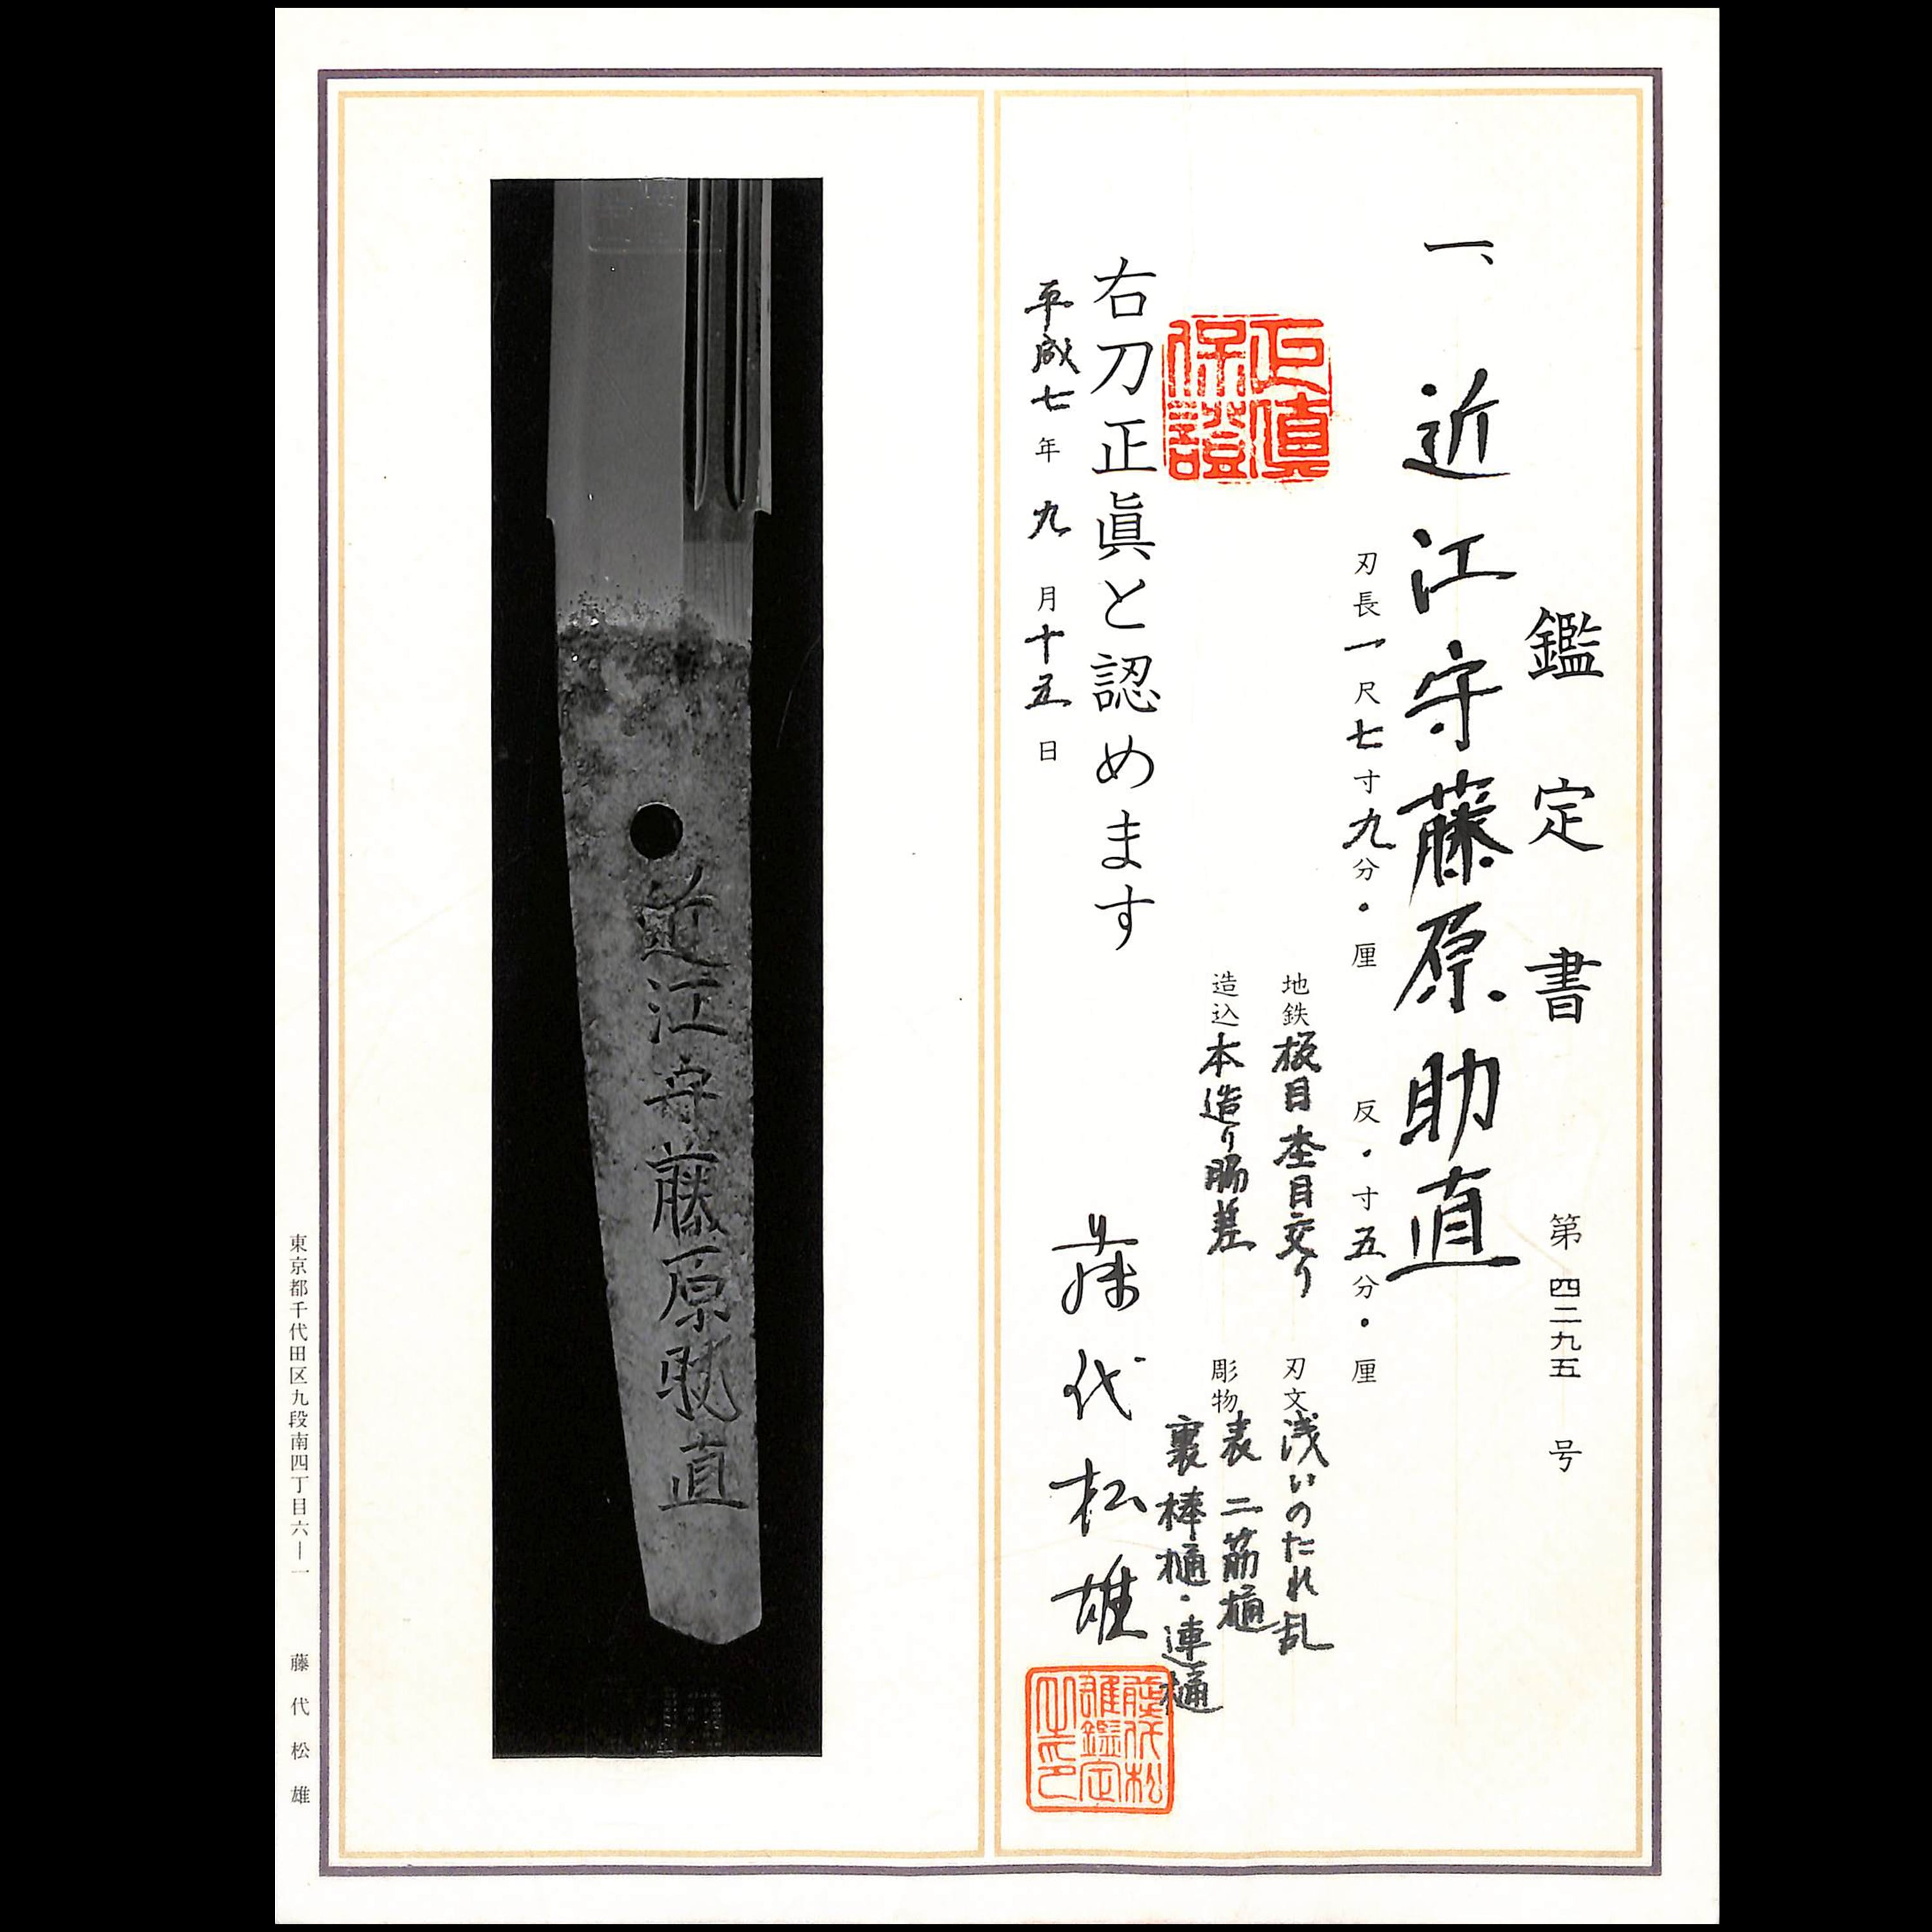 鑑定書
第四二九五号
一、近江守藤原助直
刃長一尺七寸九分・厘
反・寸五分・厘
地鉄板目杢目交り
刃文浅いのたれ乱
造込本造り脇差
彫物表二筋樋
裏棒樋・連樋
正眞保證
右刀正眞と認めます
平成七年九月十五日
藤代松雄
藤代松雄鑑定之印
近江守藤原助直
東京都千代田区九段南四丁目六ー一
藤代松雄